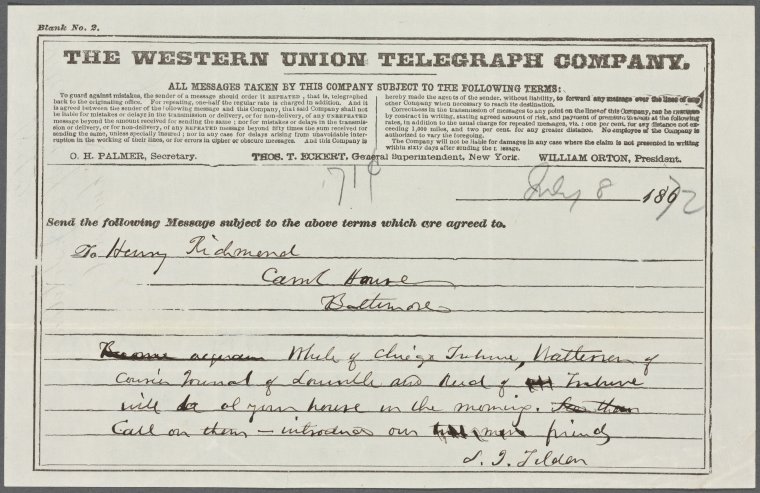 Blank No. 2.
THE WESTERN UNION TELEGRAPH COMPANY.
ALL MESSAGES TAKEN BY THIS COMPANY SUBJECT TO THE FOLLOWING TERMS:
To guard against mistakes, the sender of a message should order it REPEATED, that is, telegraphed
back to the originating office. For repeating, one-half the regular rate is charged in addition. And it
is agreed between the sender of the following message and this Company, that said Company shall not
be liable for mistakes or delays in the transmission or delivery, or for non-delivery, of any UNREPEATED
message beyond the amount received for sending the same; nor for mistakes or delays in the transmis-
sion or delivery, or for non-delivery, of any REPEATED message beyond fifty times the sum received for
sending the same, unless specially insured; nor in any case for delays arising from unavoidable inter-
ruption in the working of their lines, or for errors in cipher or obscure messages. And this Company is
hereby made the agents of the sender, without liability, to forward any message over the lines of any
other Company when necessary to reach its destination.
Correctness in the transmission of messages to any point on the lines of this Company, can be
by contract in writing, stating agreed amount of risk, and payment of premium thereon at the following
rates, in addition to the usual charge for repeated messages, viz.: one per cent. for any distance not ex-
ceeding 1,000 miles, and two per cent. for any greater distance. No employee of the Company is
authorized to vary the foregoing.
The Company will not be liable for damages in any case where the claim is not presented in writing
within sixty days after sending the message.
O. H. PALMER, Secretary. THOS. T. ECKERT, General Superintendent, New York. WILLIAM ORTON, President.
July 8 1872
Send the following Message subject to the above terms which are agreed to.
To Henry Richmond
House
Baltimore
White of Chicago Tribune, Watterson of
Courier Journal of Louisville and Reid of Tribune
will be at your house in the morning.
Call on them - introduce our friends
S. J. Tilden